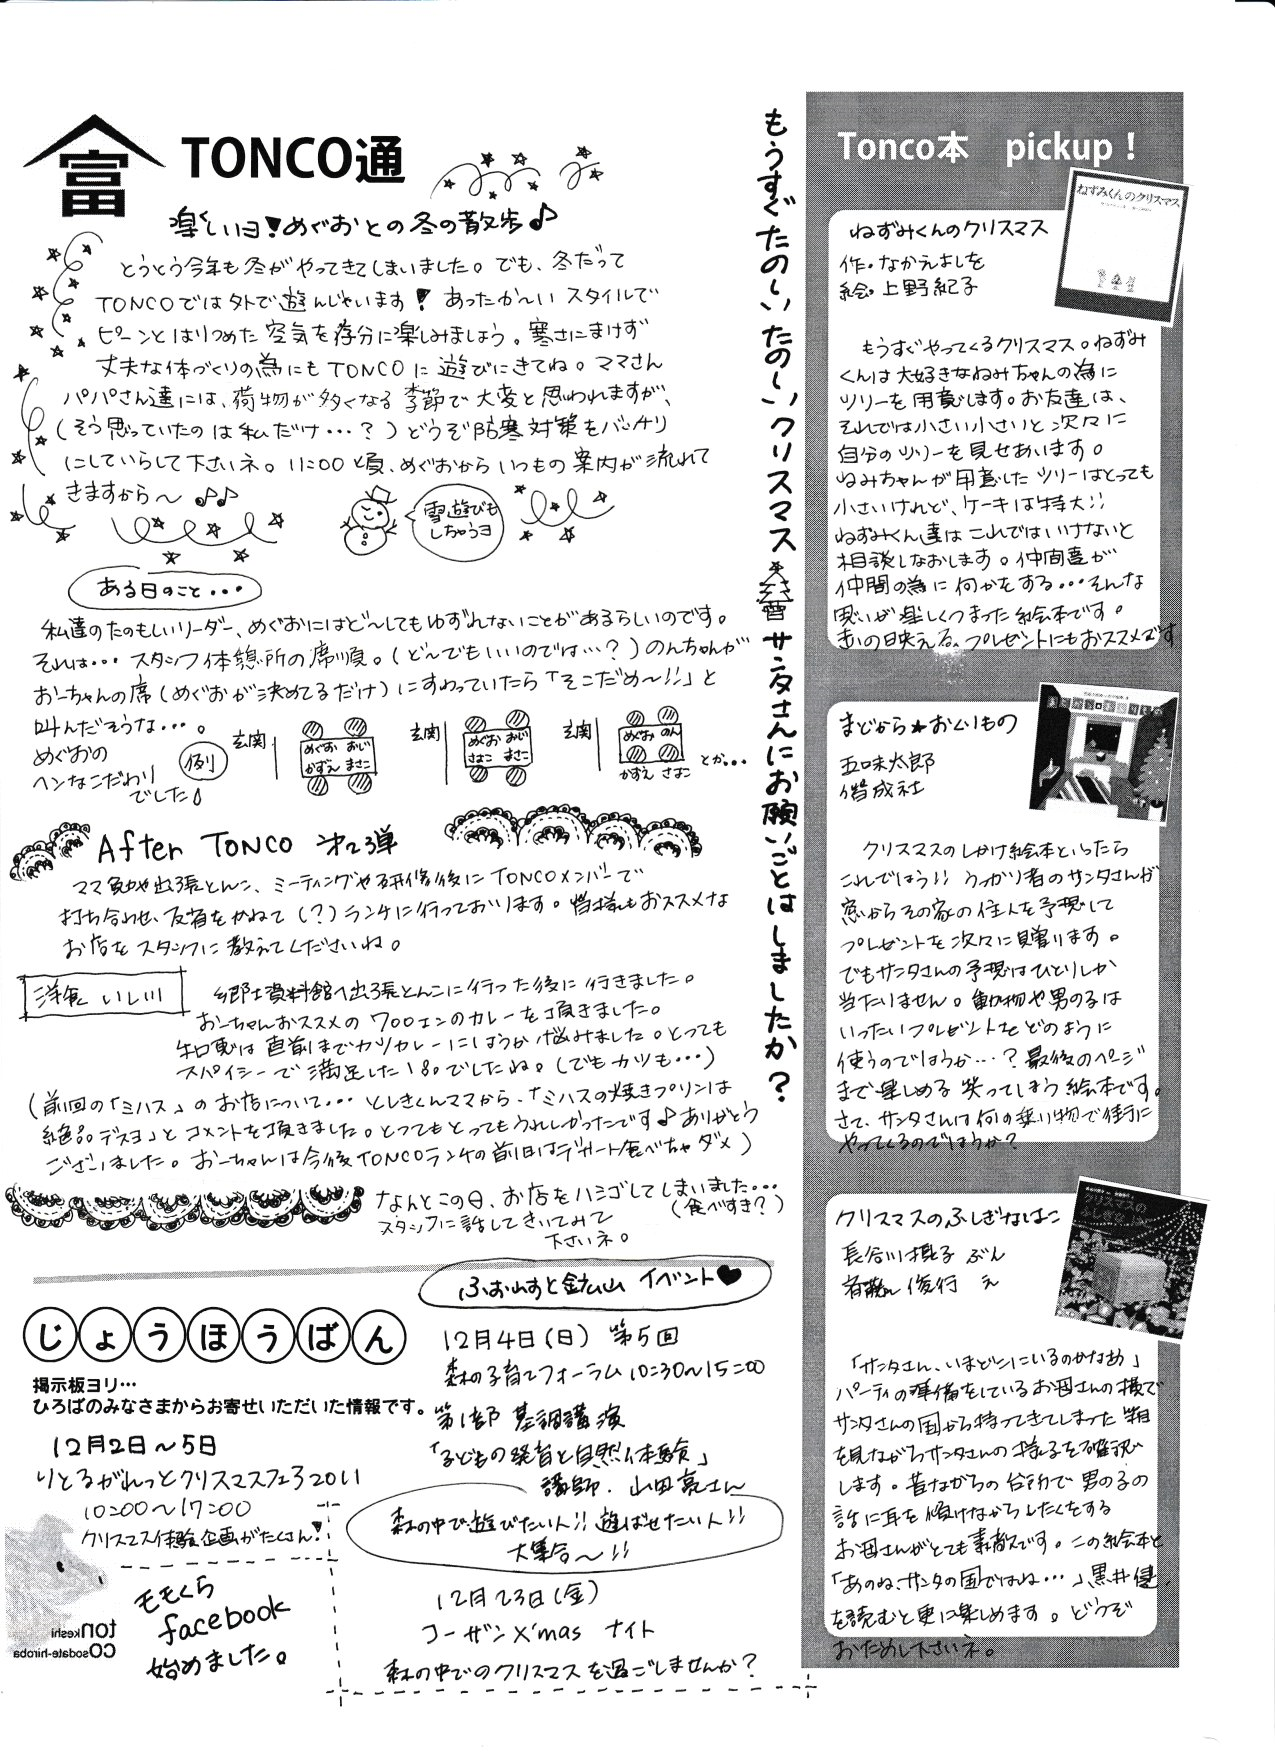 富
TONCO通
楽しいヨ!めぐおとの冬の散歩♪
とうとう今年も冬がやってきてしまいました。でも、冬だって
TONCOでは外で遊んじゃいます!あったか〜い スタイルで
ピーンとはりつめた空気を存分に楽しみましょう。寒さにまけず
丈夫な体づくりの為にもTONCOに遊びにきてね。ママさん
パパさん達には、荷物が多くなる季節で大変と思われますが、
(そう思っていたのは私だけ…?)どうぞ防寒対策をバッチリ
にしていらして下さいネ。11:00頃、めぐおからいつもの案内が流れて
きますから〜♪♪
雪遊びも
しちゃうヨ
ある日のこと・・・
私達のたのもしいリーダー、めぐおにはど〜してもゆずれないことがあるらしいのです。
それは… スタッフ休憩所の席順。(どーでもいいのでは…?)のんちゃんが
おーちゃんの席(めぐおが決めてるだけ)にすわっていたら「そこだめ〜!!」と
叫んだそうな…。
めぐおの
ヘンなこだわり
でした♪
例
玄関
めぐお おじ
かずえ まさこ
玄関
めぐお おじ
さとこ まさこ
玄関
めぐお のん
かずえ さとこ
とか…
After TONCO 第2弾
ママ勉や出張とんこ、ミーティングや研修後にTONCOメンバーで
打ち合わせ、反省をかねて(?)ランチに行っております。皆様もおススメな
お店をスタッフに教えてくださいね。
洋食 いし川
郷土資料館へ出張とんこに行った後に行きました。
おーちゃんおススメの700エンのカレーを頂きました。
直前までカツカレーにしようか悩みました。とっても
スパイシーで満足した1品でしたね。(でもカツも…)
(前回の「ミハス」のお店について… としきくんママから、「ミハスの焼きプリンは
絶品デスヨ」とコメントを頂きました。とってもとってもうれしかったです♪ありがとう
ございました。おーちゃんは今後TONCOランチの前日はデザート食べちゃダメ)
なんとこの日、お店をハシゴしてしまいました…
(食べすぎ?)
スタッフに話してきいてみて
下さいネ。
じょうほうばん
掲示板ヨリ…
ひろばのみなさまからお寄せいただいた情報です。
12月2日〜5日
りとるがれっとクリスマスフェラ2011
10:00〜17:00
クリスマス体験企画がたくさん!
モモくら
facebook
始めました。
tonkeshi
COsodate-hiroba
ふぉれすと鉱山 イベント♥
12月4日(日) 第5回
森の子育てフォーラム 10:30〜15:00
第1部 基調講演
「子どもの発育と自然体験」
講師. 山田亮さん
森の中で遊びたい人!! 遊ばせたい人!!
大集合〜!!
12月23日(金)
コーザンX'mas ナイト
森の中でのクリスマスを過ごしませんか?
もうすぐたの〜いたの〜いクリスマス サンタさんにお願いごとはしましたか?
Tonco本 pickup!
ねずみくんのクリスマス
ねずみくんのクリスマス
作・なかえよしを
絵・上野紀子
もうすぐやってくるクリスマス。ねずみ
くんは大好きなねみちゃんの為に
ツリーを用意します。お友達は、
それでは小さい小さいと次々に
自分のツリーを見せあいます。
ねみちゃんが用意したツリーはとっても
小さいけれど、ケーキは特大!!
ねずみくん達はこれではいけないと
相談しなおします。仲間達が
仲間の為に何かをする…そんな
思いが楽しくつまった絵本です。
赤の日映える。プレゼントにもおススメです
まどから★おくりもの
五味太郎
偕成社
クリスマスのしかけ絵本といったら
これでしょう!! うっかり者のサンタさんが
窓からその家の住人を予想して
プレゼントを次々に贈ります。
でもサンタさんの予想はひとりしか
当たりません。動物や男の子は
いったいプレゼントをどのように
使うのでしょうか…?最後のページ
まで楽しめる笑ってしまう絵本です。
さて、サンタさんは何の乗り物で街に
やってくるのでしょうか?
クリスマスのふしぎなはこ
クリスマスの
ふしぎなはこ
長谷川摂子 ぶん
斉藤俊行 え
「サンタさん、いまどこにいるのかなあ」
パーティの準備をしているお母さんの横で
サンタさんの国から持ってきてしまった箱
を見ながらサンタさんの様子を確認
します。昔ながらの台所で男の子の
話に耳を傾けながらしたくをする
お母さんがとても素敵です。この絵本と
「あのね、サンタの国ではね…」黒井健
を読むと更に楽しめます。どうぞ
おためし下さいネ。